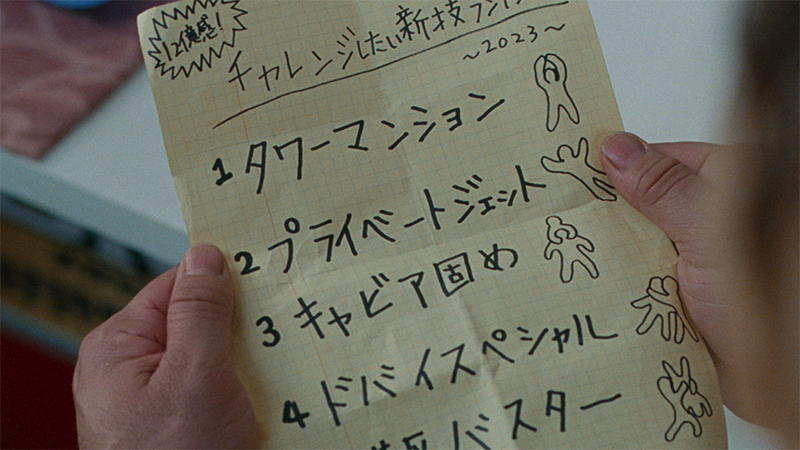 12億感!
チャレンジしたい新技ランキン
~2023~
1 タワーマンション
2 プライベートジェット
3 キャビア固め
4 ドバイスペシャル
バスター